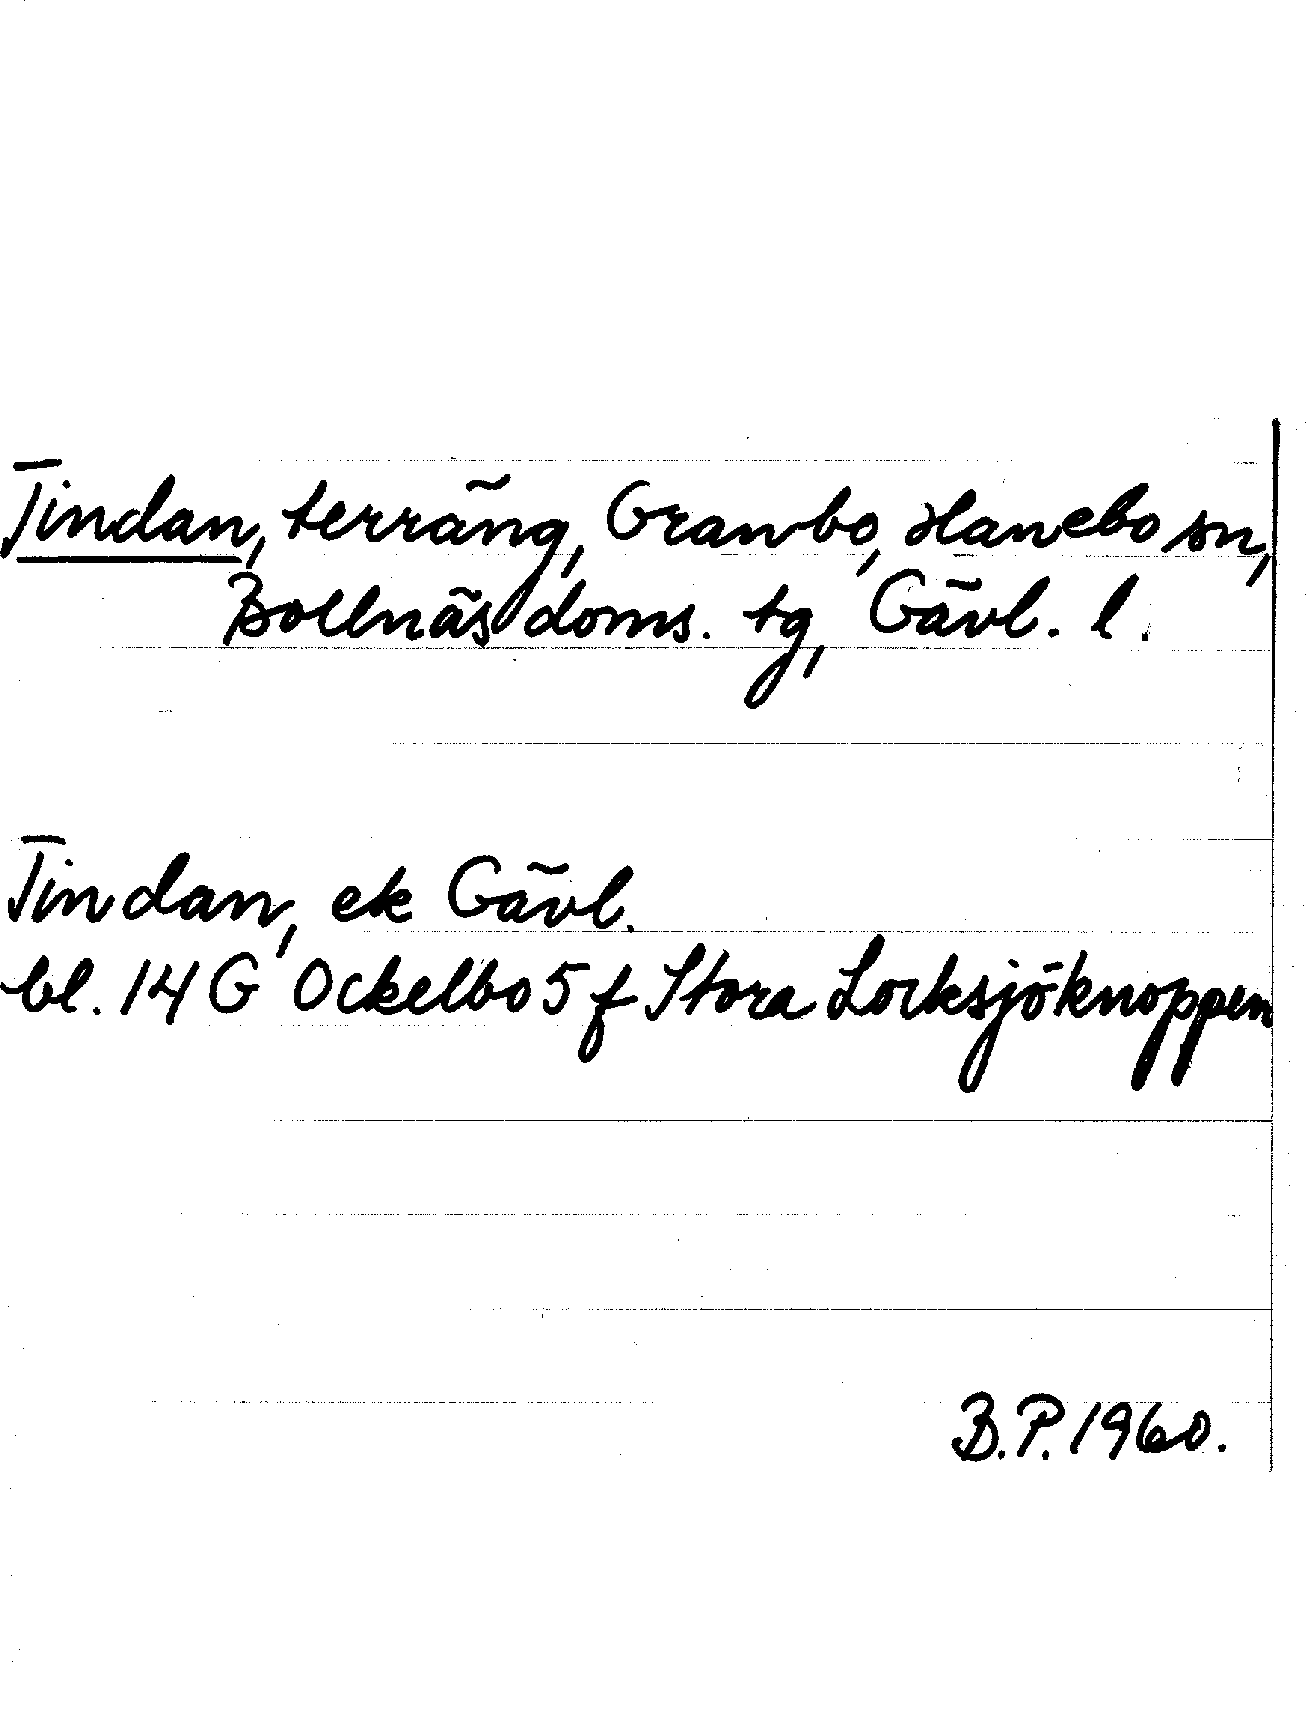 Tindan, terräng, Granbo, Hanebo sn,
Bollnäs doms. tg, Gävl. l.
Tindan, ek Gävl.
bl. 14 G Ockelbo 5 f Stora Locksjöknoppen
B.P. 1960.